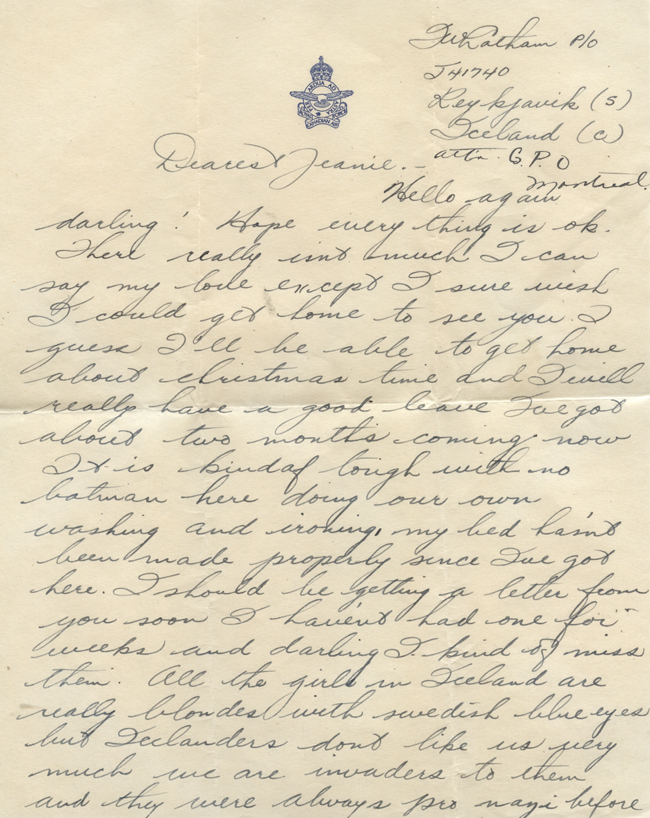 F W Latham P/O
J41740
Reykjavik (S)
Iceland (C)
attn. G.P.O
Montreal.
Dearest Jeanie. –
Hello again
darling! Hope every thing is ok.
There really isnt much I can
say my love except I sure wish
I could get home to see you. I
guess I'll be able to get home
about christmas time and I will
really have a good leave I've got
about two months coming now
It is kindaf tough with no
batman here doing our own
washing and ironing, my bed hasn't
been made properly since I've got
here. I should be getting a letter from
you soon I haven't had one for
weeks and darling I kind of miss
them. All the girls in Iceland are
really blondes with swedish blue eyes
but Icelanders dont like us very
much we are invaders to them
and they were always pro nazi before